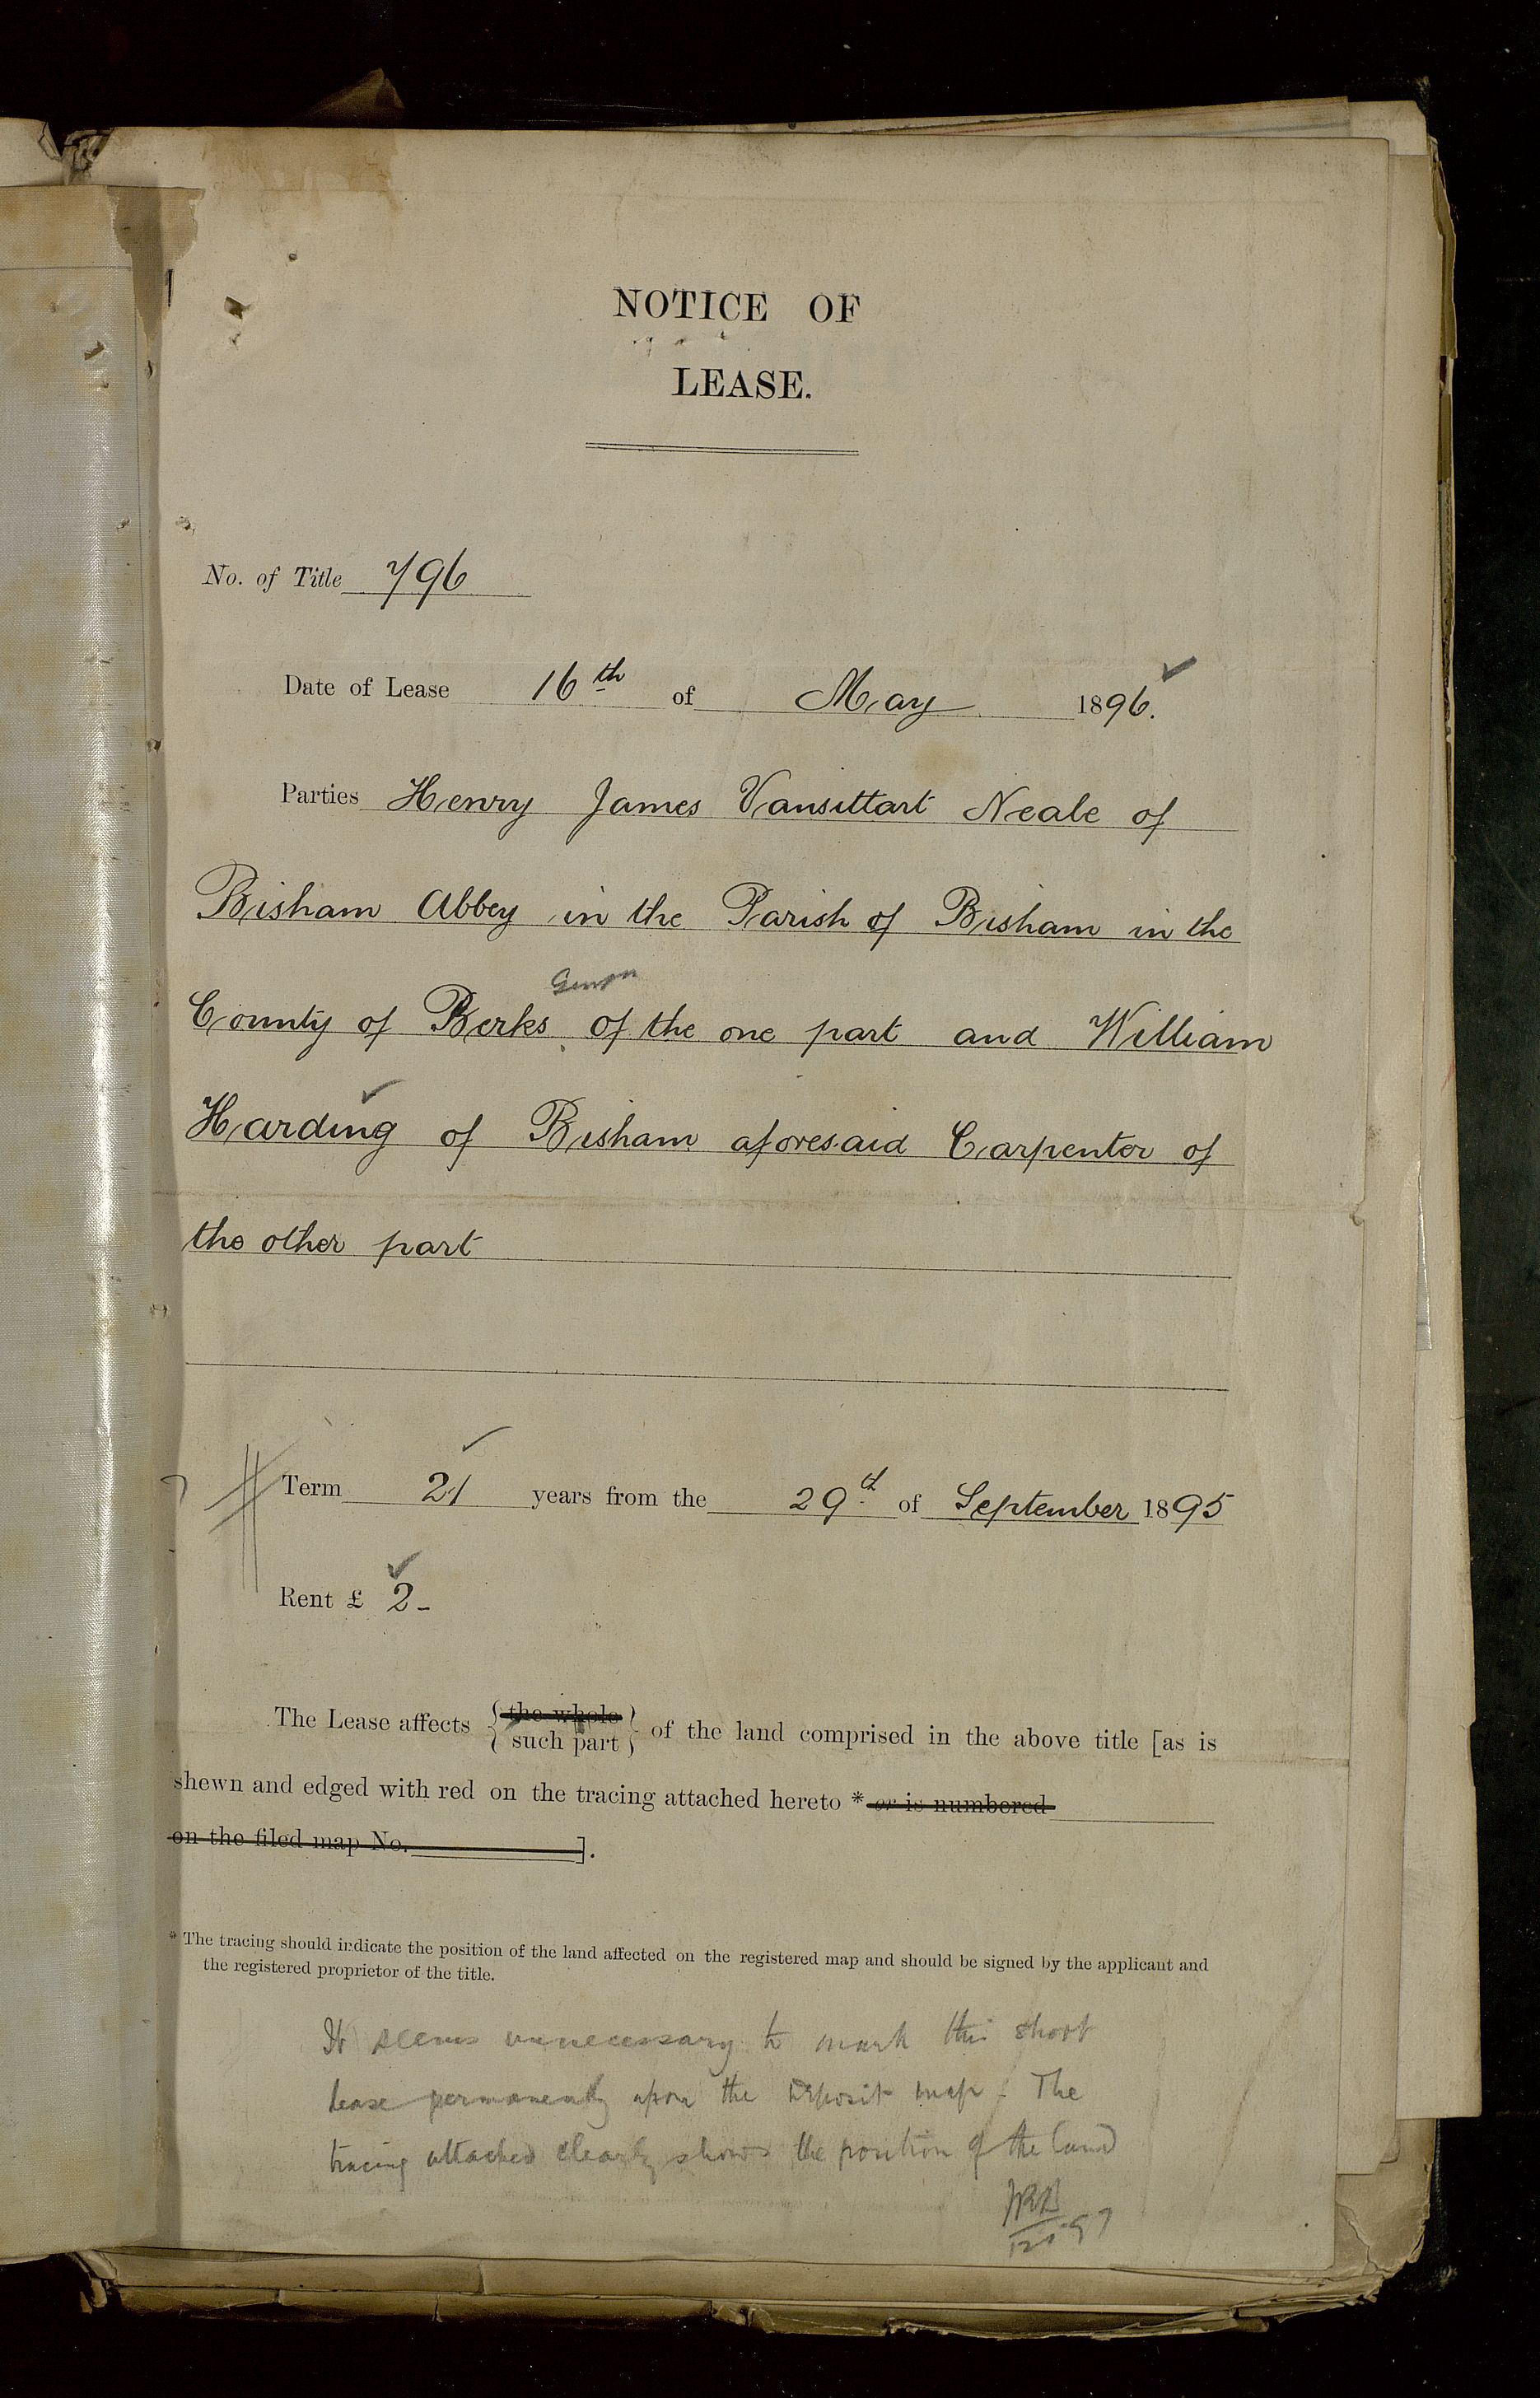 NOTICE OF
LEASE.
No. of Title 796
Date of Lease 16th of May 1896.
Parties Henry James Vansittart Neale of
Bisham Abbey in the Parish of Bisham in the
County of Berks of the one part and William
Harding of Bisham aforesaid Carpenter of
the other part
Term 21 years from the 29th of September 1895
Rent £ 2-
The Lease affects { the whole
such part } of the land comprised in the above title [as is
shewn and edged with red on the tracing attached hereto * or is numbered
on the filed map No. ].
* The tracing should indicate the position of the land affected on the registered map and should be signed by the applicant and
the registered proprietor of the title.
It seems unnecessary to mark this short
lease permanently upon the deposit map. The
tracing attached clearly shows the position of the land